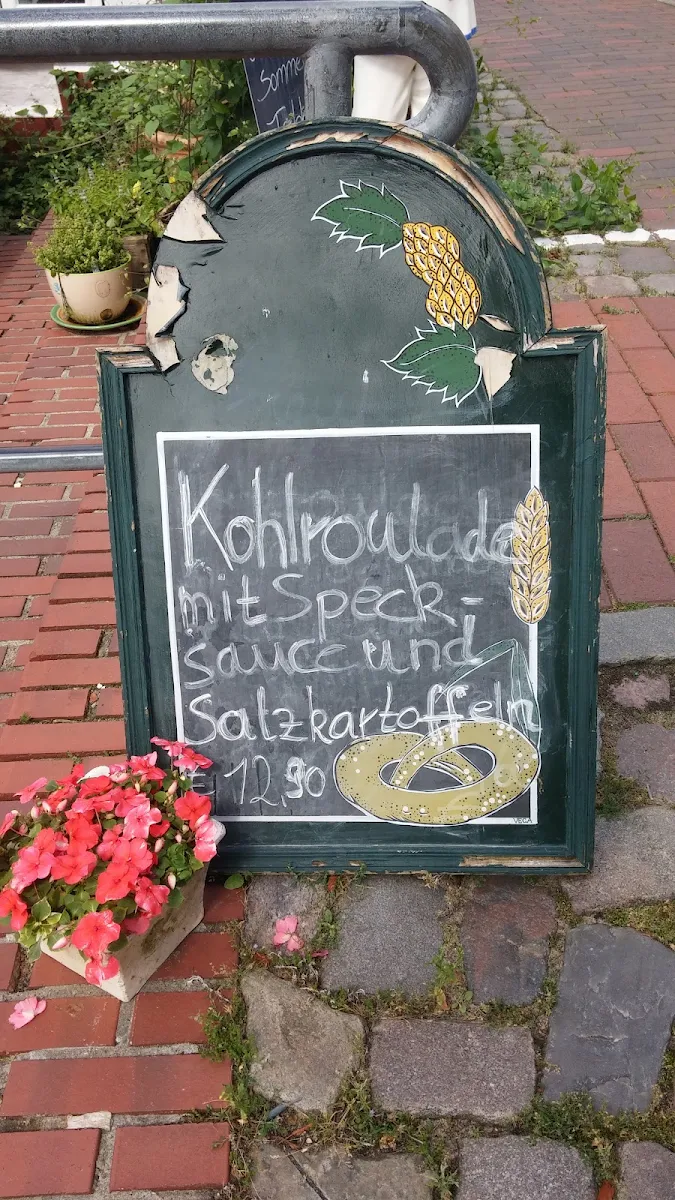 Somme
Kohlroulade
mit Speck-
sauce und
Salzkartoffeln
€ 12,90
VEGA